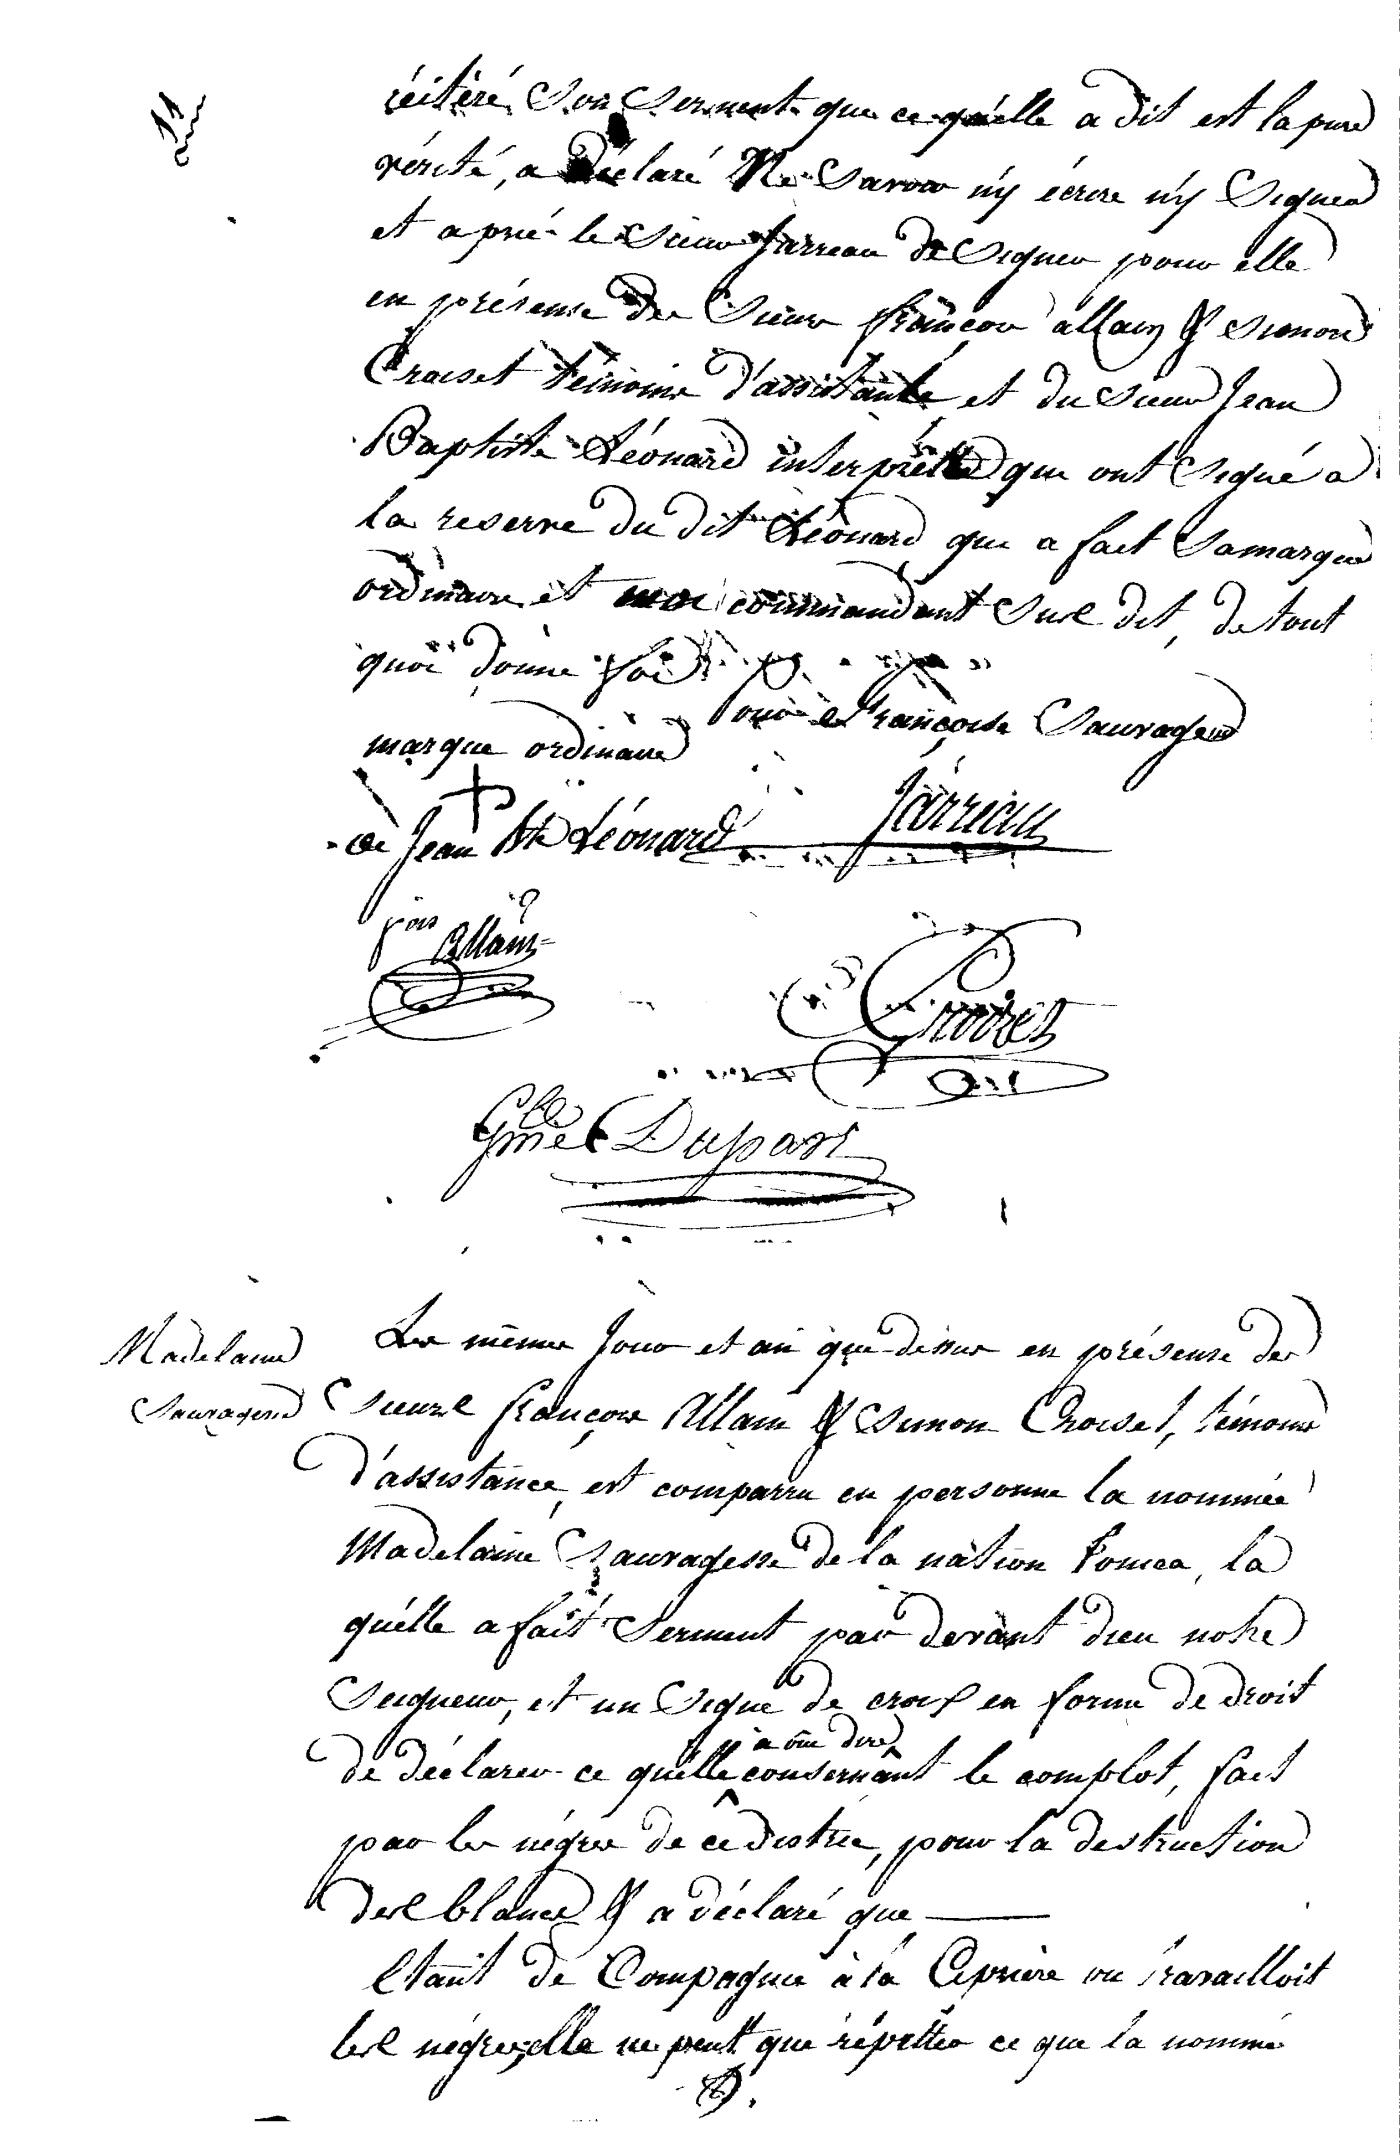 réitéré, Son Serment que ce qu'elle a dit est la pure
vérité, a Déclaré Ne Savoir n'y écrire n'y Signer
et a prié le Sieur Jarreau de Signer pour elle
en présense des Sieurs françois allain & Simon
Croiset témoins d'assistance, et du Sieur Jean
Baptiste Léonard interprette qui ont Signé a
la reserve du dit Léonard qui a fait Samarque
ordinaire et moi commandant Sus dit, de tout
quoi donne foi
pour Françoise Sauvagesse
marque ordinaire
Jarreau
de Jean Bte Léonard
fois Allain
Croizet
Gme Duparc
Madelaine
Sauvagesse
Les mêmes Jour et an que dessus en présense des
Sieurs françois Allain & Simon Croiset, témoins
d'assistance, est comparru en personne la nommée
Madelaine Sauvagesse de la nàtion Ponca, la
qu'elle a fait Serment par devant dieu notre
Seigneur, et un Signe de croix en forme de droit
a oüi dire
de déclarer ce qu'elle consernânt le complot, fait
par les négres de ce distric, pour la destruction
des blancs & a déclaré que
Etant de Compagnie à la Ciprière ou travailloit
les négres, elle ne peut que répetter ce que la nommé